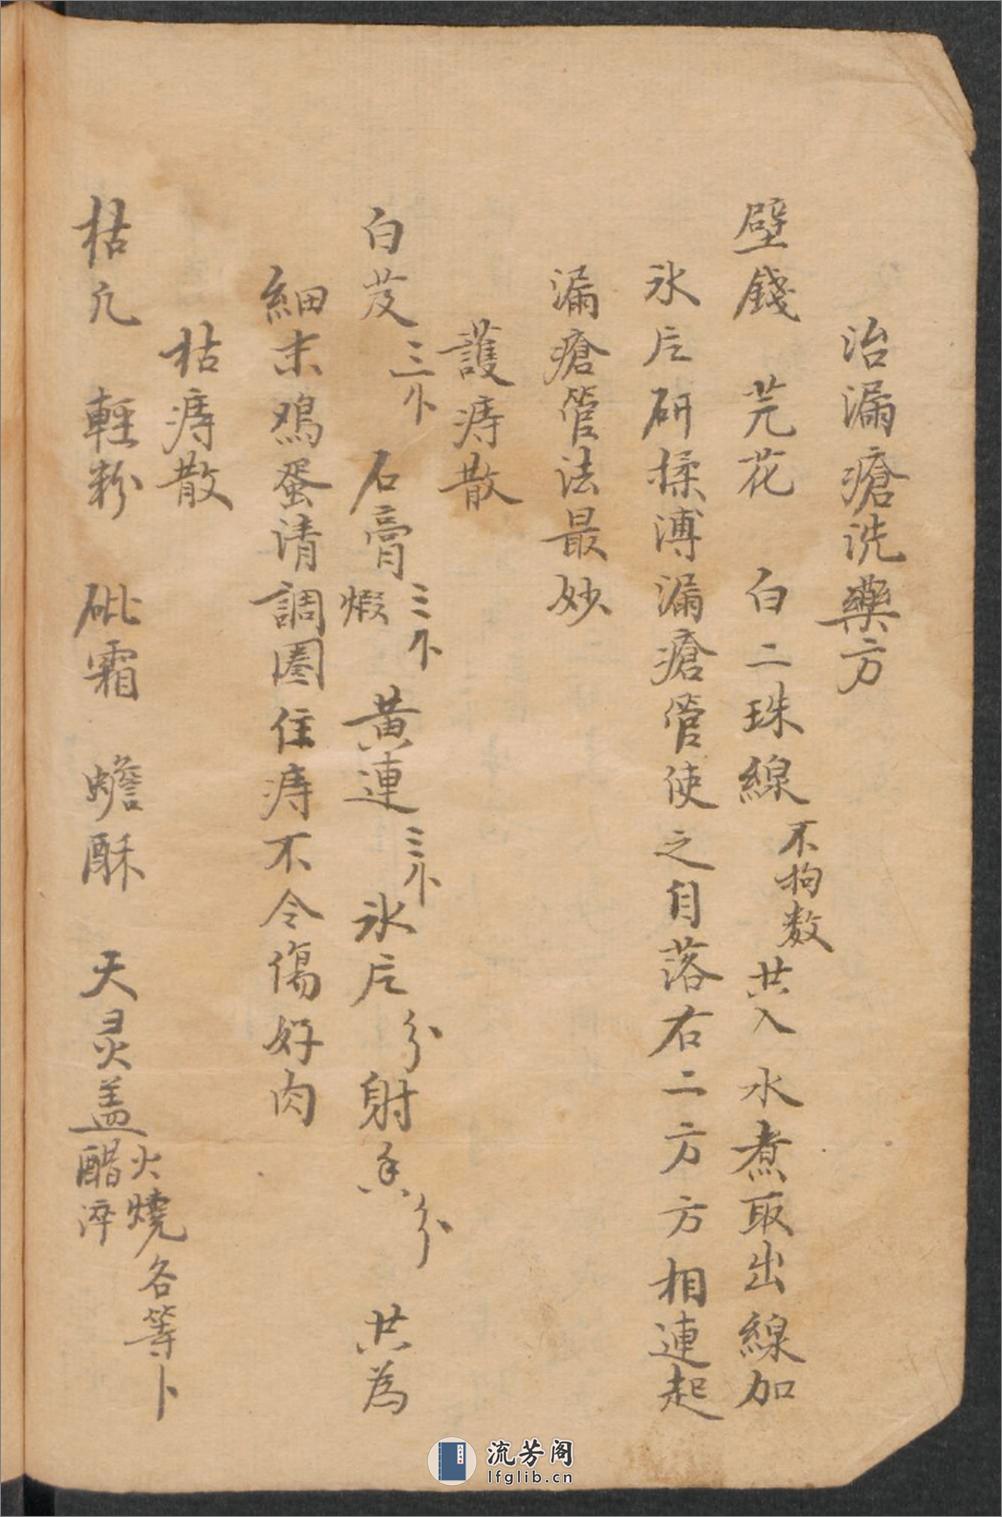 治漏瘡洗藥方
壁錢 芫花 白二珠線不拘数共入水煮取出線加
氷片研揉溥漏瘡管使之自落右二方方相連起
漏瘡管法最妙
護痔散
白芨三卜 石膏煅三卜 黄連三卜 氷片分 射香分 共為
細末鸡蛋清調圈住痔不令傷好肉
枯痔散
枯凣 輕粉 砒霜 蟾酥 天灵盖火燒醋淬各等卜
流芳阁
lfglib.cn